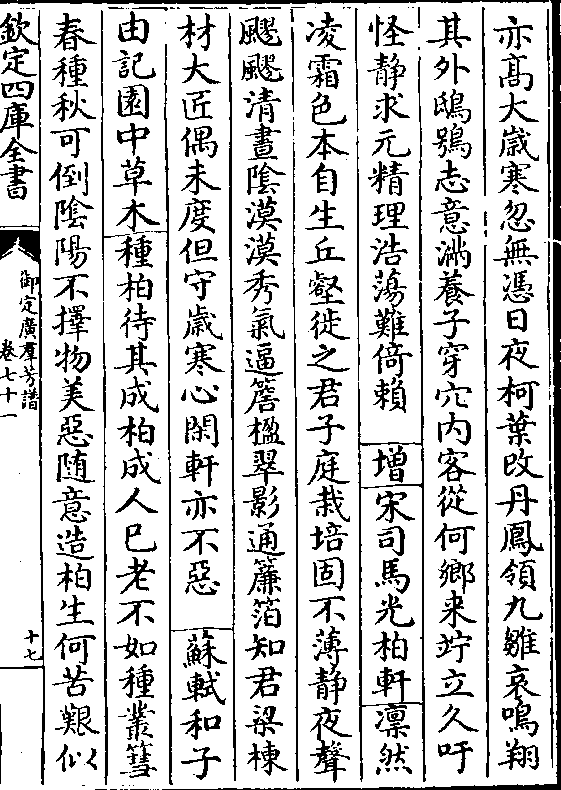 亦髙大嵗寒忽無憑日夜柯葉改丹鳳領九雛哀鳴翔
其外鴟鴞志意滿養子穿穴内客從何鄉来竚立久吁
怪静求元精理浩蕩難倚賴 增宋司馬光柏軒凛然
凌霜色本自生丘壑徙之君子庭栽培固不薄静夜聲
飕飕清晝陰漠漠秀氣逼簷楹翠影通簾箔知君梁棟
材大匠偶未度但守嵗寒心閑軒亦不惡 蘇軾和子
由記園中草木種柏待其成柏成人已老不如種叢篲
春種秋可倒陰陽不擇物美惡随意造柏生何苦艱似
欽定四庫全書
御定廣羣芳譜
卷七十一
十七